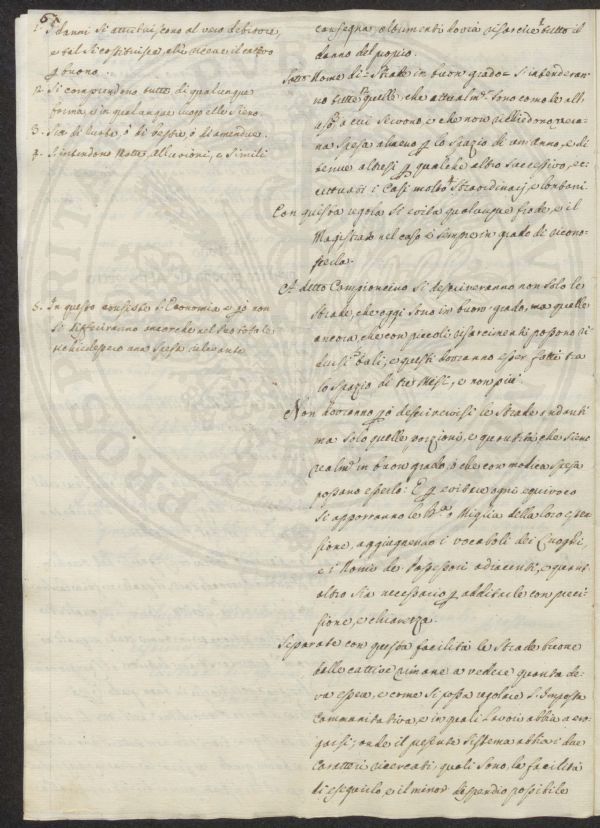 6
1. I danni si attribuiscono al vero debitore,
e tal si costituisca, chi riceve il cattivo
p buono.
2. Si comprendono tutte di qualunque
forma, e in qualunque luogo elle sieno.
3. Sia di lusto, o di o d'amendue.
4. S'intendono Rotte, alluvioni, e simili
5. In questo consiste l'Economia, e pò non
si differiranno ancorche nel suo totale
richiedessero una spesa rilevante
consegna, altrimenti dovrà risarcire tutto il
danno del proprio.
Sotto Nome di Strade in buon grado si intenderan-
no tutte quelle, che attualm.e sono comode all'
uso, a cui servono, e che non richiedono veru-
na spesa almeno p lo spazio di un'anno, e di
tenue altresi p qualche altro successivo, ec-
cettuati i casi molto straordinarj, e lontani.
Con questa regola si evita qualunque frode, e il
Magistrato nel caso è sempre in grado di ricono-
scerla.
A detto Campioncino si descriveranno non solo le
Strade, che oggi sono in buon grado, ma quelle
ancora, che con piccoli risarcimenti possono ri-
dursi tali, e questi dovranno esser fatti tra
lo spazio di tre Mesi, e non più.
Non dovranno pò descrivervisi le Strade andanti
ma solo quelle porzioni, e quantità che sieno
realm.e in buon grado, o che con modica spesa
possano esserlo: E p evitare ogni equivoco
si apporranno le o Miglia della loro esten-
sione, aggiugnendo i vocaboli dei Luoghi,
e i Nomi de Possessori adiacenti, e quant'
altro sia necessario p additarle con preci-
sione, e chiarezza.
Separate con questa facilità le Strade buone
dalle cattive rimane a vedere quanta de-
va essere, e come si possa regolare l'Imposta
Communitativa, e in quali Lavori abbia a ero-
garsi; onde il presente sistema abbia i due
Caratteri ricercati, quali sono, la facilità
di eseguirlo, e il minor dispendio possibile